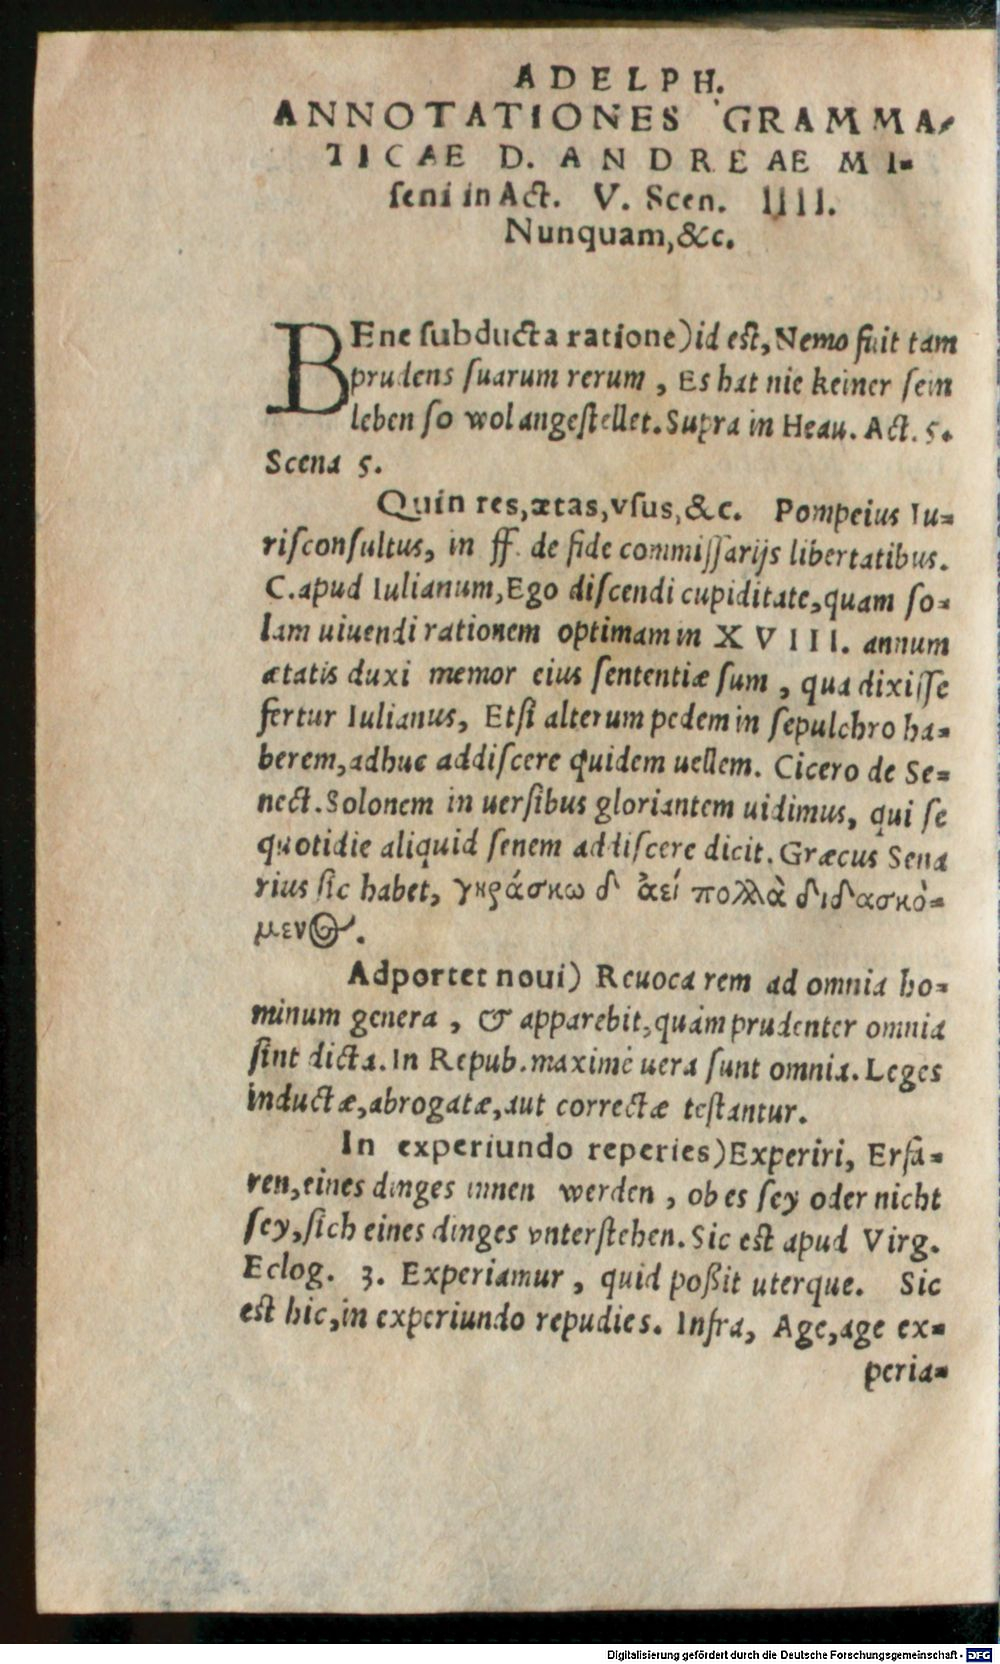 ADELPH.
ANNOTATIONES GRAMMA-
TICAE D. ANDREAE MI-
ſeni in Act. V. Scen. IIII.
Nunquam,&c.
BEne ſubducta ratione) id eſt, Nemo fuit tam
prudens ſuarum rerum, Es hat nie keiner ſein
leben ſo wol angeſtellet. Supra in Heau. Act. 5.
Scena 5.
Quin res, ætas, vſus, &c. Pompeius Iu-
riſconſultus, in ff. de fide commiſſarijs libertatibus.
C. apud Iulianum, Ego diſcendi cupiditate, quam ſo-
lam uiuendi rationem optimam in XVIII. annum
ætatis duxi memor eius ſententiæ ſum, qua dixiſſe
fertur Iulianus, Etſi alterum pedem in ſepulchro ha-
berem, adhuc addiſcere quidem uellem. Cicero de Se-
nect. Solonem in uerſibus gloriantem uidimus, qui ſe
quotidie aliquid ſenem addiſcere dicit. Græcus Sena
rius ſic habet, γηράσκω δ ἀεί πολλὰ διδασκό-
μενος.
Adportet noui) Reuoca rem ad omnia ho-
minum genera, & apparebit, quàm prudenter omnia
ſint dicta. In Repub. maximè uera ſunt omnia. Leges
inductæ, abrogatæ, aut correctæ teſtantur.
In experiundo reperies) Experiri, Erfa-
ren, eines dinges innen werden, ob es ſey oder nicht
ſey, ſich eines dinges vnterſtehen. Sic eſt apud Virg.
Eclog. 3. Experiamur, quid poßit uterque. Sic
eſt hic, in experiundo repudies. Infra, Age, age ex-
peria-
Digitalisierung gefördert durch die Deutsche Forschungsgemeinschaft - DFG